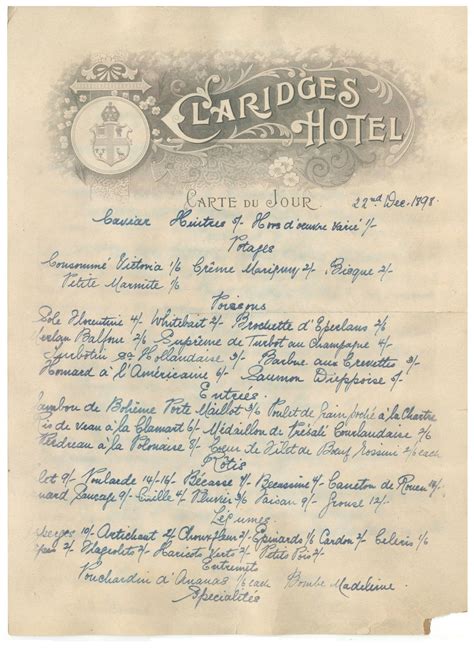 CLARIDGES
HOTEL
CARTE DU JOUR 22nd Dec. 1898.
Caviar Huitres 5/- Hors d'oeuvre Varié 1/-
Potages
Consommé Victoria 1/6 Crême Marigny 2/- Bisque 2/-
Petite Marmite 1/6
Poissons
Sole Florentine 4/- Whitebait 2/- Brochette d'Eperlans 2/6
erlan Balfour 2/- Suprême de Turbot au Champagne 4/-
Hollandaise 3/- Barbue aux Crevettes 3/-
Homard à l'Américaine 6/- Saumon Dieppoise 5/-
Entrées
ambon de Bohême Porte Maillot 3/6 Poulet de Grain poché à la Chartre
is de veau à la Clamart 6/- Médaillon de Présalé Courlandaise 2/6
erdreau à la Polonaise 8/- Coeur de Filet de Boeuf Rossini 2/6 each
Rôtis
lot 9/- Poularde 14/-16/- Bécasse 7/- Becassine 4/- Caneton de Rouen
nard Sauvage 9/- Caille 4/- Pluvier 3/6 Faisan 9/- Grouse 12/-
Légumes
sperges 10/- Artichaut 2/- Chouxfleur 2/- Epinards 1/6 Cardon 2/- Celeris 1/6
2/- Flageolets 2/- Haricots Verts 2/- Petits Pois 2/-
Entremets
Pouchardin d'Ananas 1/6 each Bombe Madeleine
Specialités